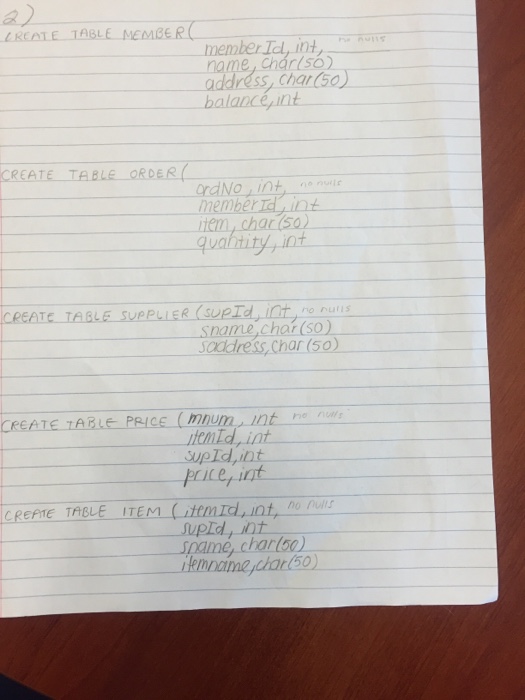 2)
CREATE TABLE MEMBER(
memberId, int, no nulls
name, char(50)
address, char(50)
balance, int
CREATE TABLE ORDER(
ordNo, int, no nulls
memberId, int
item, char(50)
quantity, int
CREATE TABLE SUPPLIER (supId, int, no nulls
sname, char(50)
saddress, char(50)
CREATE TABLE PRICE (mnum, int no nulls
itemId, int
supId, int
price, int
CREATE TABLE ITEM (itemId, int, no nulls
supId, int
sname, char(50)
itemname, char(50)